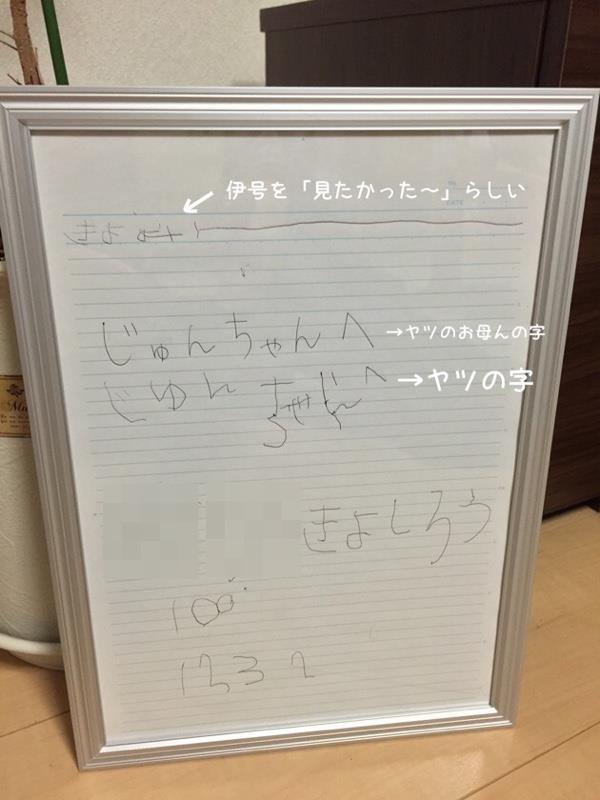 伊号を「見たかった〜」らしい
DATE
きよ
じゅんちゃんへ →ヤツのお母んの字
じゅんちゃんへ →ヤツの字
きよしろう
100
1232